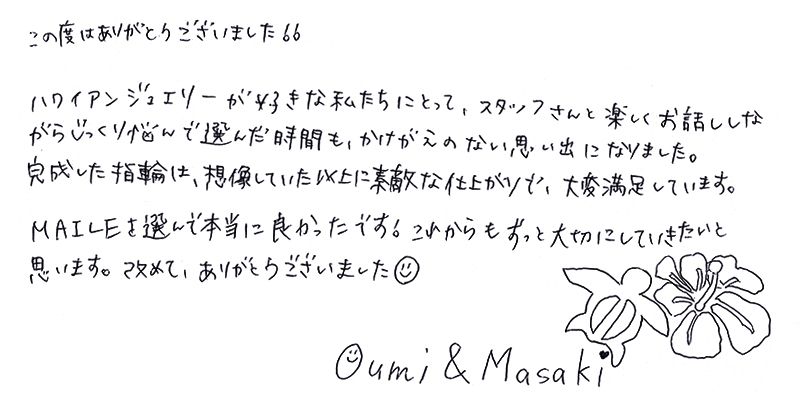 この度はありがとうございました!!
ハワイアンジュエリーが好きな私たちにとって、スタッフさんと楽しくお話ししな
がらじっくり悩んで選んだ時間も、かけがえのない思い出になりました。
完成した指輪は、想像していた以上に素敵な仕上がりで、大変満足しています。
MAILEを選んで本当に良かったです!これからもずっと大切にしていきたいと
思います。改めて、ありがとうございました☺
Oumi & Masaki